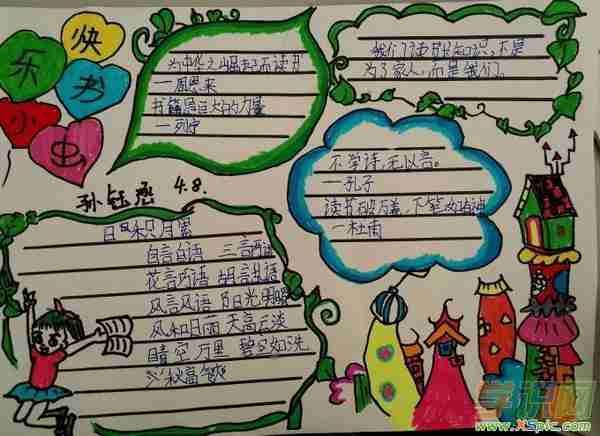 快
乐 书
小 虫
为中华之崛起而读书
—周恩来
书籍是巨大的力量
—列宁
我们读书知识,不是
为了家人,而是我们。
不学诗,无以言。
—孔子
读书破万卷,下笔如有神
—杜甫
孙钰 4.8.
日积月累
自言自语 三言两语
花言巧语 胡言乱语
风言风语
风和日丽 天高云淡
晴空万里 碧空如洗
学识网
www.XSpic.com